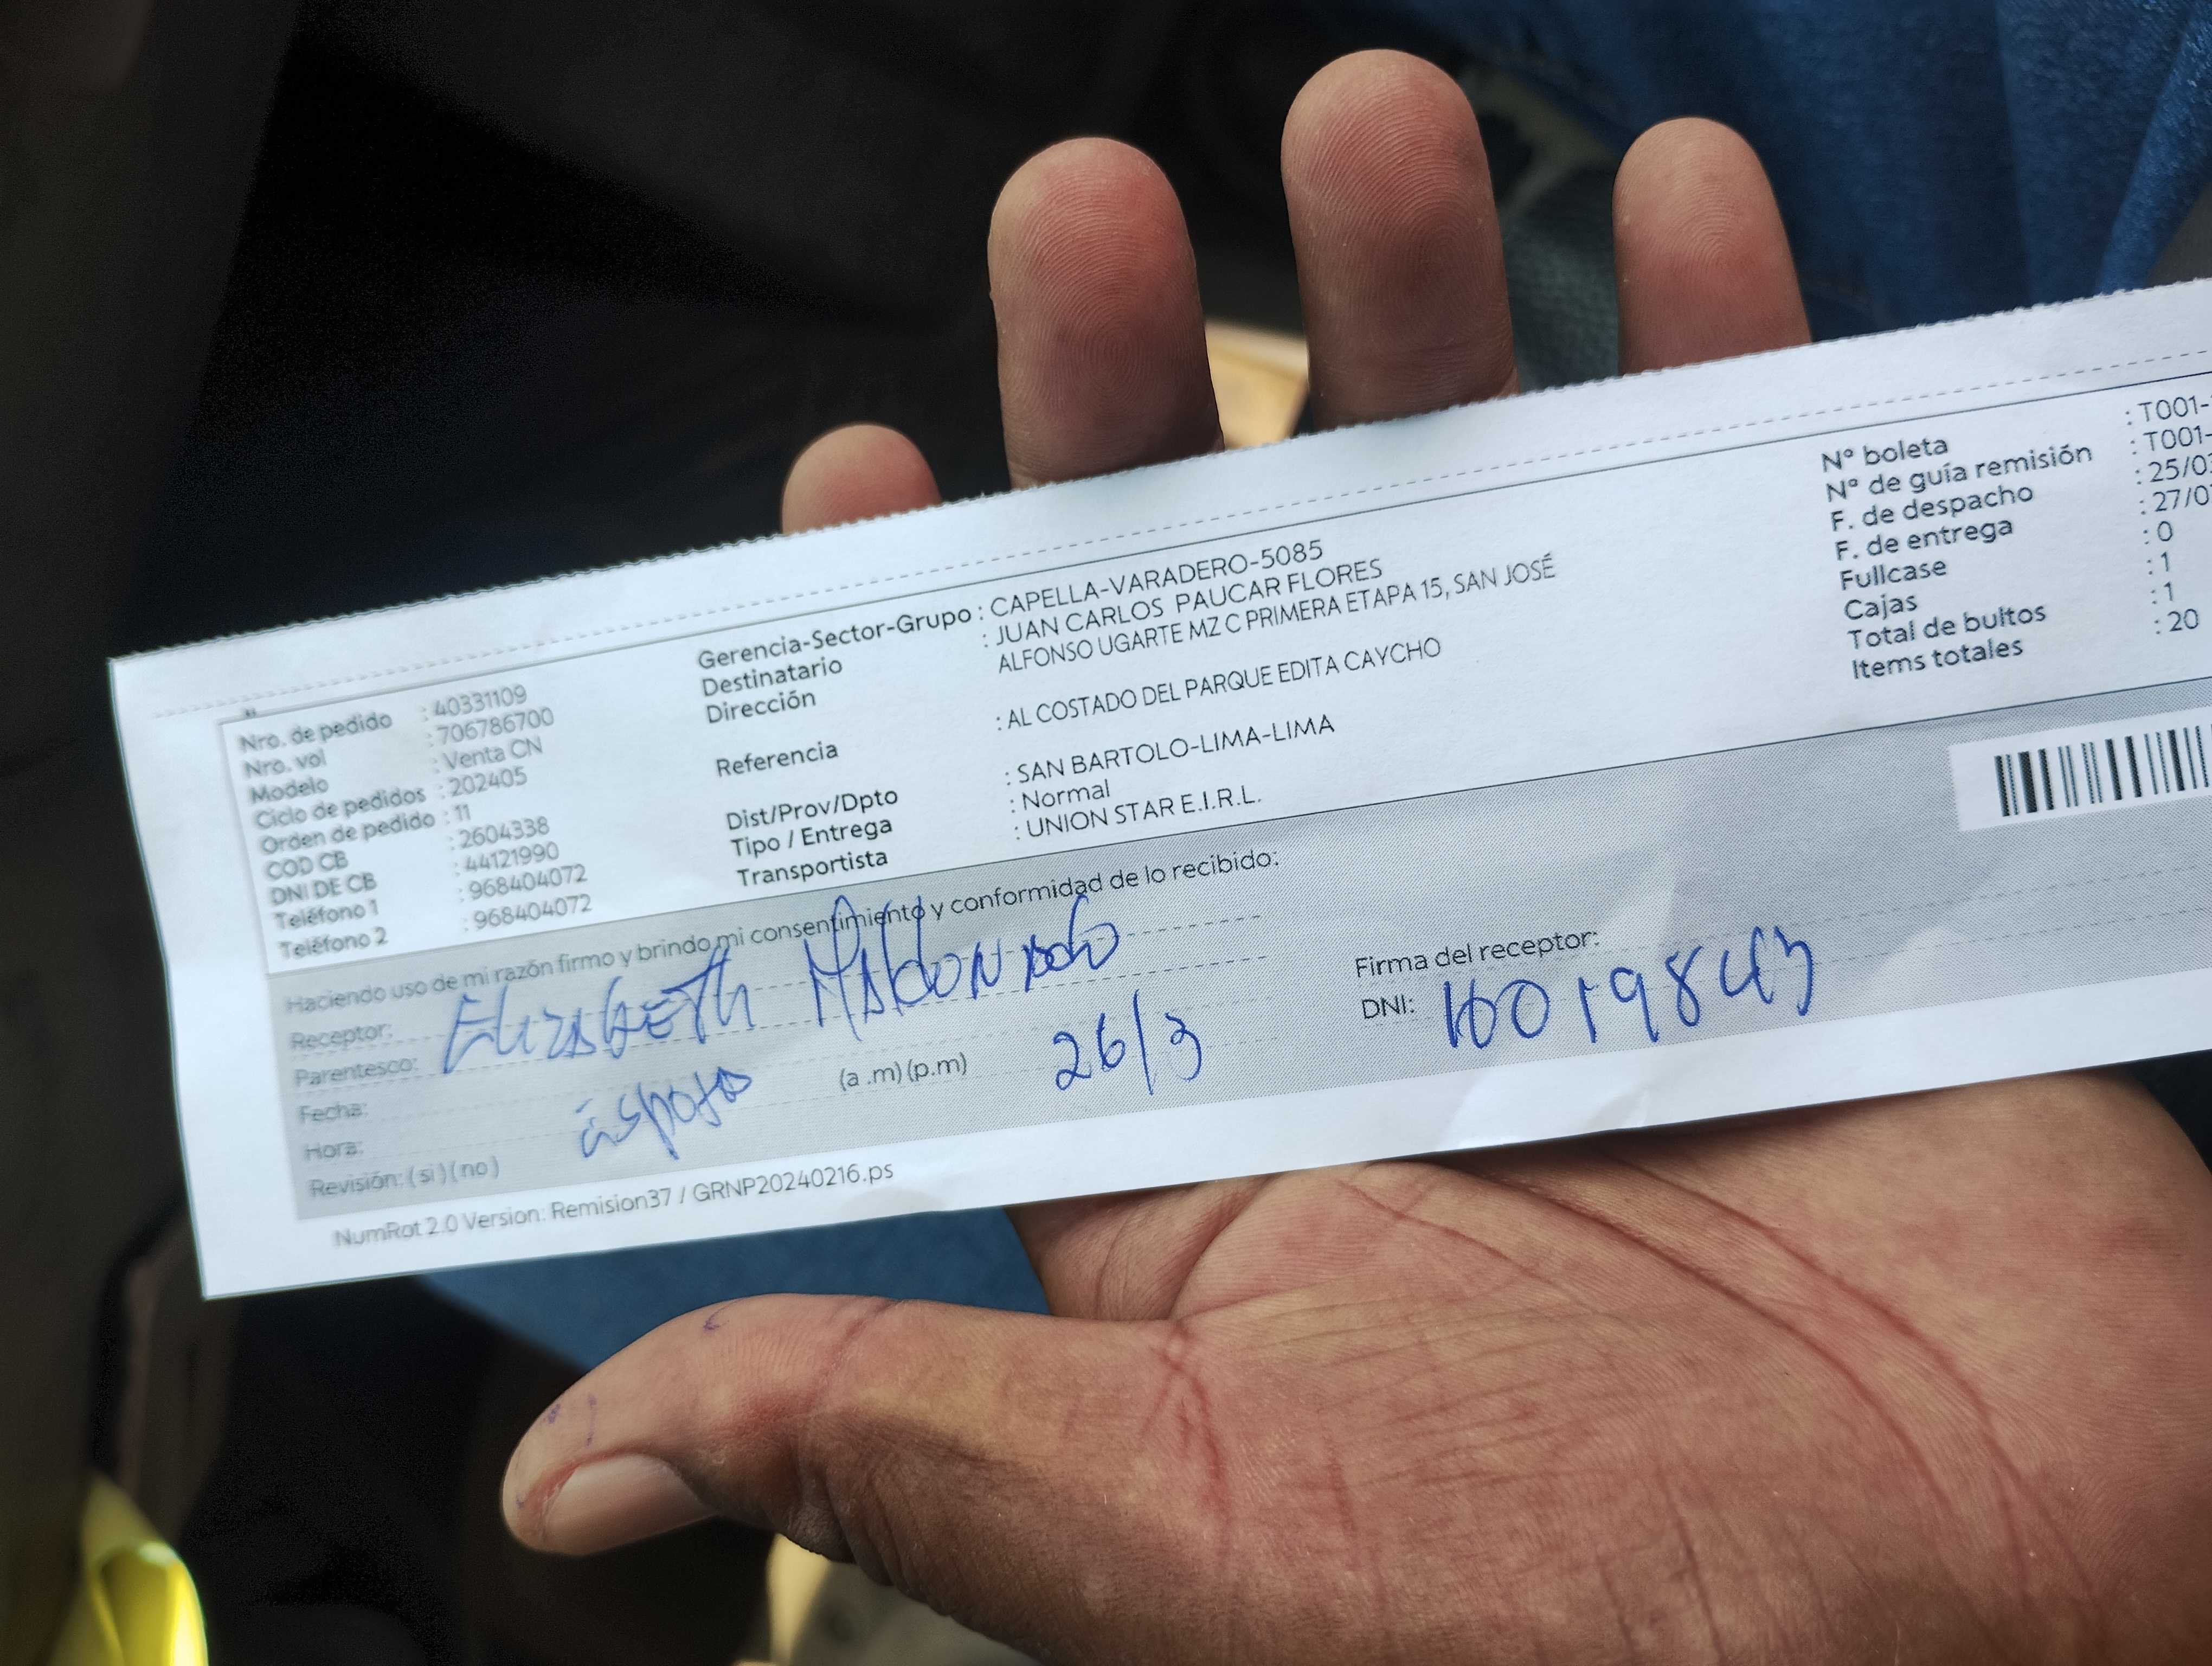 Nro. de pedido : 40331109
Nro. vol : 706786700
Modelo : Venta CN
Ciclo de pedidos : 202405
Orden de pedido : 11
COD CB : 2604338
DNI DE CB : 44121990
Teléfono 1 : 968404072
Teléfono 2 : 968404072
Gerencia-Sector-Grupo : CAPELLA-VARADERO-5085
Destinatario : JUAN CARLOS PAUCAR FLORES
Dirección ALFONSO UGARTE MZ C PRIMERA ETAPA 15, SAN JOSÉ
Referencia : AL COSTADO DEL PARQUE EDITA CAYCHO
Dist/Prov/Dpto : SAN BARTOLO-LIMA-LIMA
Tipo / Entrega : Normal
Transportista : UNION STAR E.I.R.L.
Nº boleta : T001-
Nº de guía remisión : T001-
F. de despacho : 25/0
F. de entrega : 27/0
Fullcase : 0
Cajas : 1
Total de bultos : 1
Items totales : 20
Haciendo uso de mi razón firmo y brindo mi consentimiento y conformidad de lo recibido:
Receptor: Elizabeth Maldonado
Parentesco: Esposa
Fecha: 26/3
Hora: (a .m) (p.m)
Revisión: (si) (no)
Firma del receptor:
DNI:
NumRot 2.0 Version: Remision37 / GRNP20240216.ps